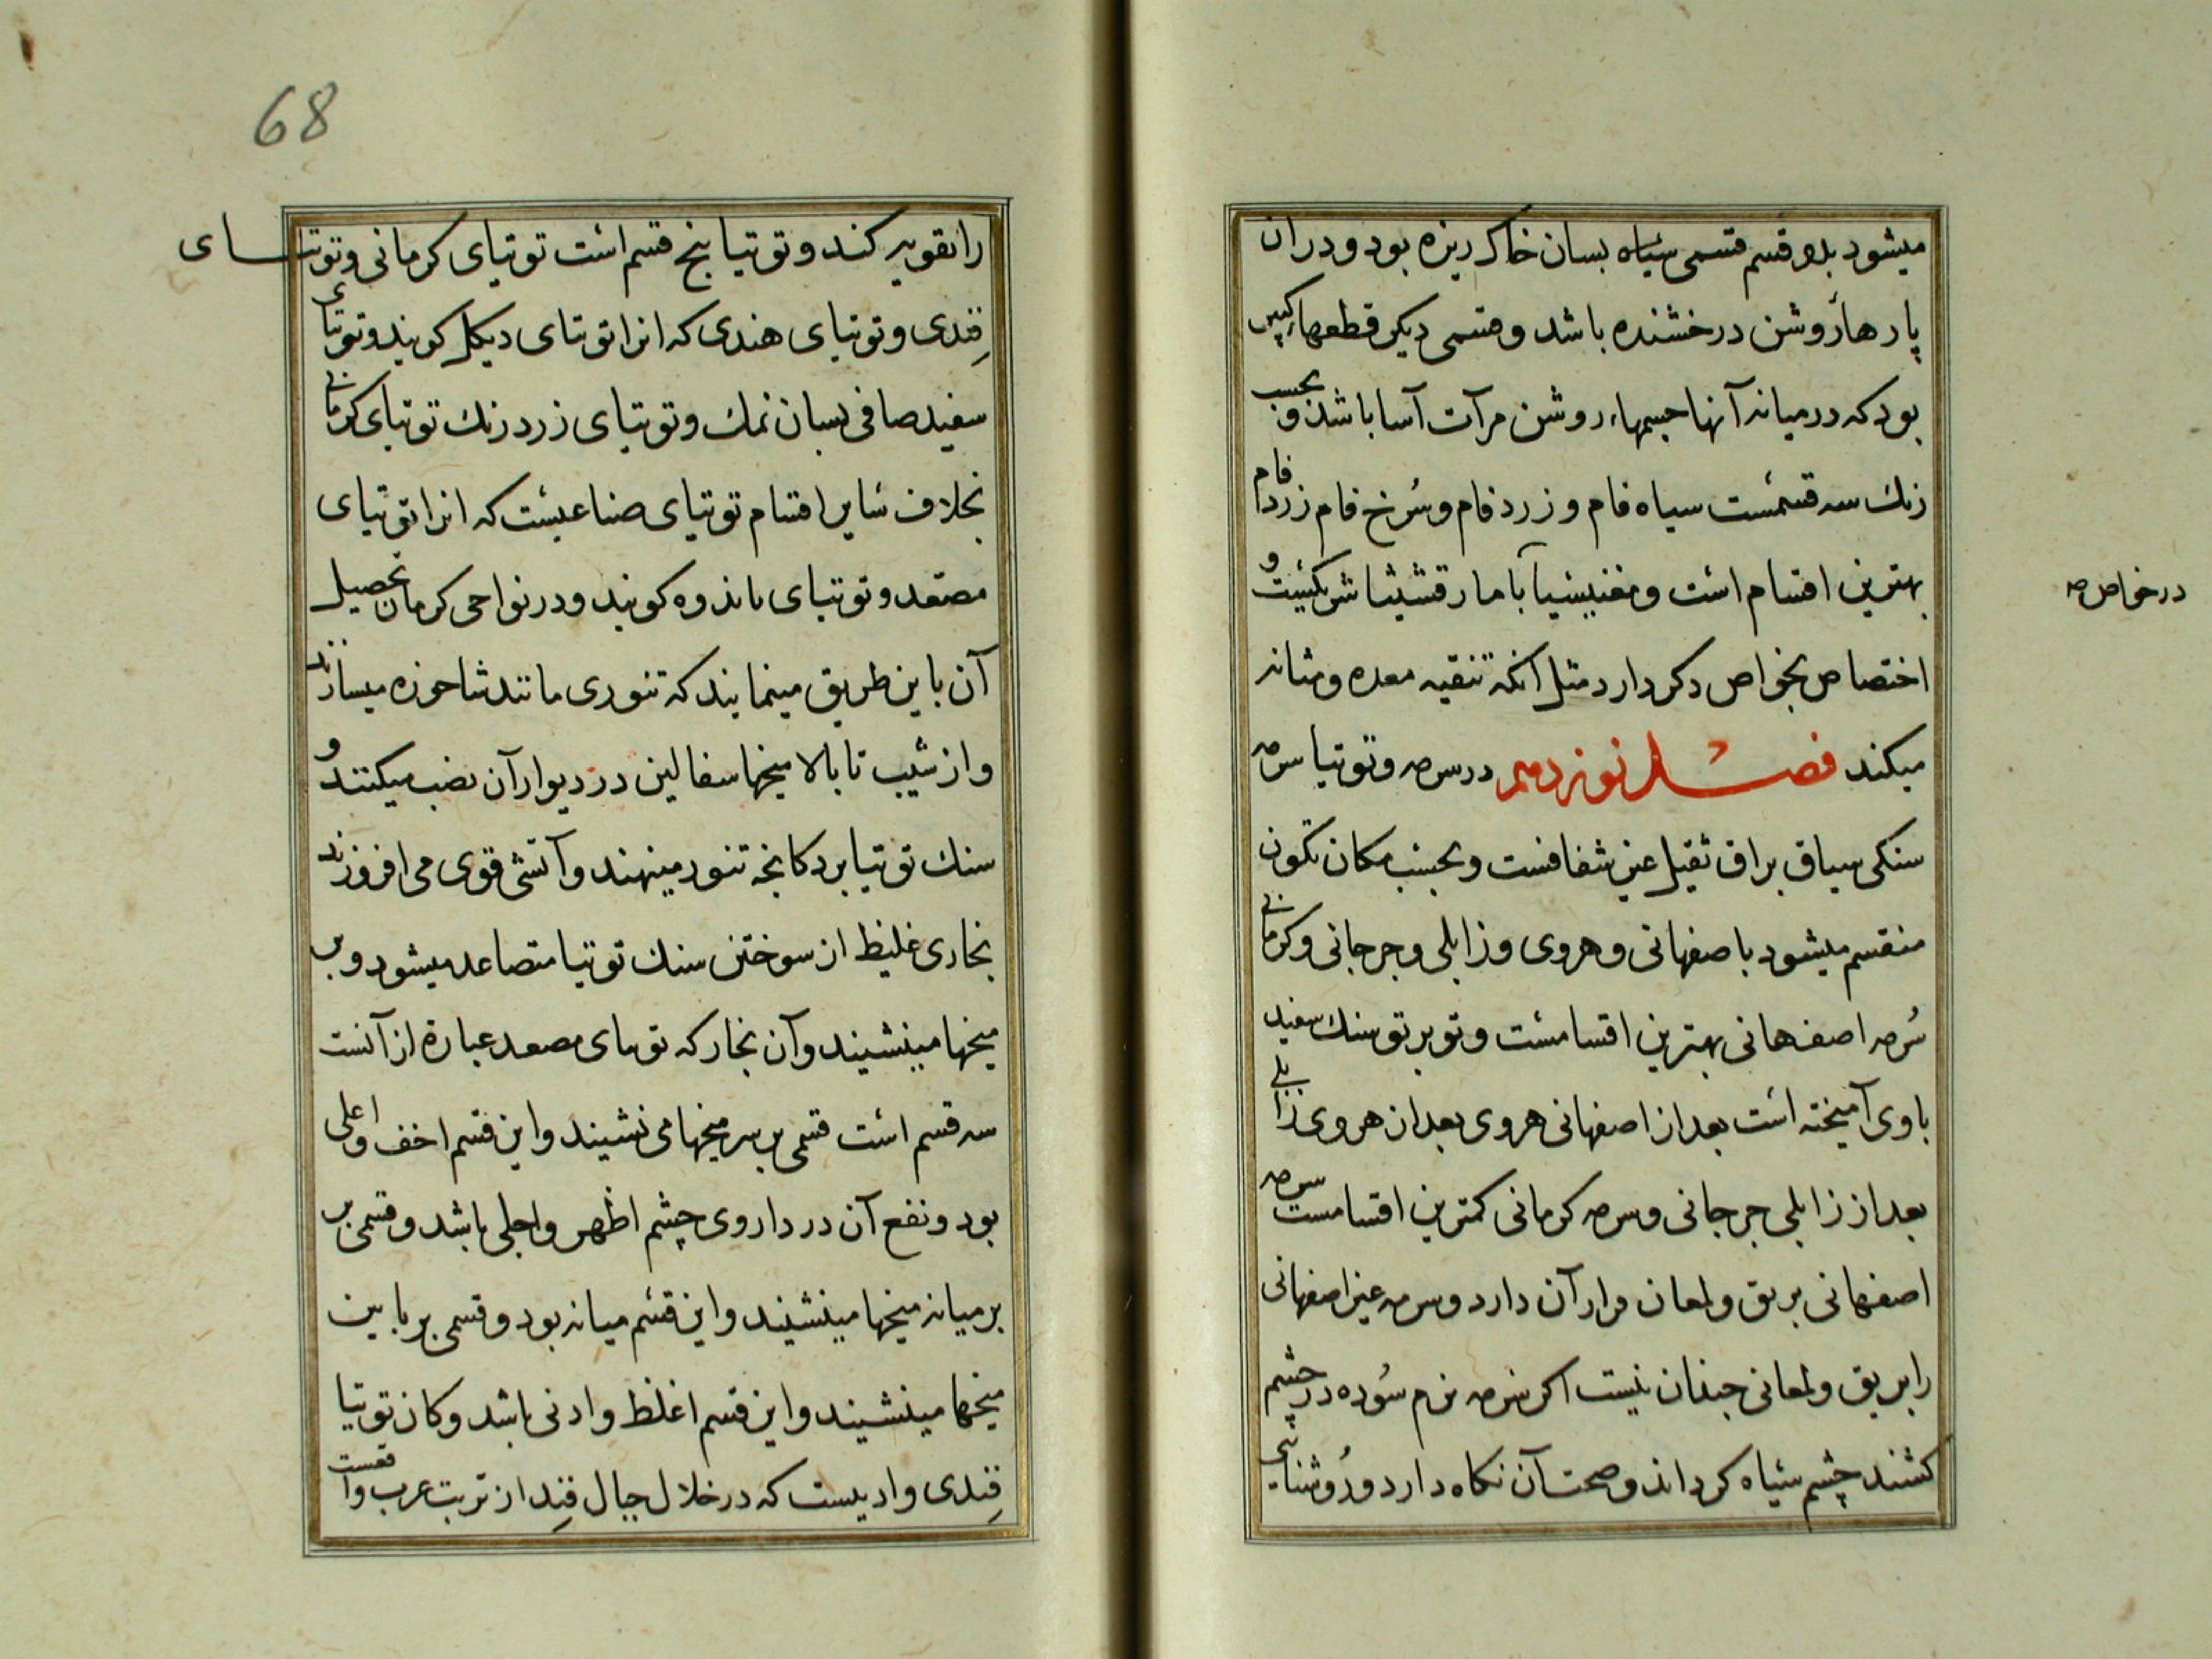 میشود بدو قسم قسمی سیاه بسان خاک ریزه بود و در ان
پارهاء روشن درخشنده باشد و قسمی دیکر قطعهاء کبیر
بود که در میانه آنها جسمهاء روشن مرآت آسا باشد و بحسب
زنك سه قسمست سیاه فام و زرد فام و سُرخ فام زرد فام
بهترین اقسام است و مغنیسیا با مارقشیثا شریکیست و
در خواص مه
اختصاص بخواص دکر دارد مثل آنکه تنقیه معده و مثانه
میکند فصل نوزدهم در سرمه و توتیا سرمه
سنکی سیاق براق ثقیل غیر شفافست و بحسب مکان تکون
منقسم میشود باصفهانی و هروی و زابلی و جرجانی و کرمانی
سُرمه اصفهانی بهترین اقسامست و توبرتو سنك سفید
باوی آمیخته است بعد از اصفهانی هروی بعد ان هروی زابلی
بعد از زابلی جرجانی و سرمه کرمانی کمترین اقسامست سرمه
اصفهانی بریق و لمعان فرار آن دارد و سرمه غیر اصفهانی
را بریق و لمعانی جندان نیست اکر سرمه نرم سُوده در چشم
کشند چشم سیاه کرداند و صحت آن نکاه دارد و رُوشنایی
68
را تقویه کند و توتیا پنج قسم است توتیای کرمانی و توتیای
قِندی و توتیای هندی که انرا توتای دیکل کویند و توتیای
سفید صافی بسان نمك و توتیای زرد رنك توتیای کرمانی
بخلاف سایر اقسام توتیای صناعیست که انرا توتیای
مصعد و توتیای باندوه کویند و در نواحی کرمان تحصیل
آن باین طریق مینمایند که تنوری مانند شاخوزه میسازند
و از شیب تا بالا میخها سفالین در دیوار آن نصب میکنند و
سنك توتیا برد کانجه تنور مینهند و آتشی قوی می افروزند
بخاری غلیظ از سوختن سنك توتیا متصاعد میشود و بر
میخها مینشیند و آن بخار که توتیای مصعد عبارة از آنست
سه قسم است قسمی بر سر میخها می نشیند و این قسم اخف و اعلی
بود و نفع آن در داروی چشم اظهر و اجلی باشد و قسمی بر
بر میانه میخها مینشیند و این قسم میانه بود و قسمی بر پایین
میخها مینشیند و این قسم اغلظ و ادنی باشد و کان توتیا
قِندی وادیست که در خلال جبال قِند از تربت عرب واقعست